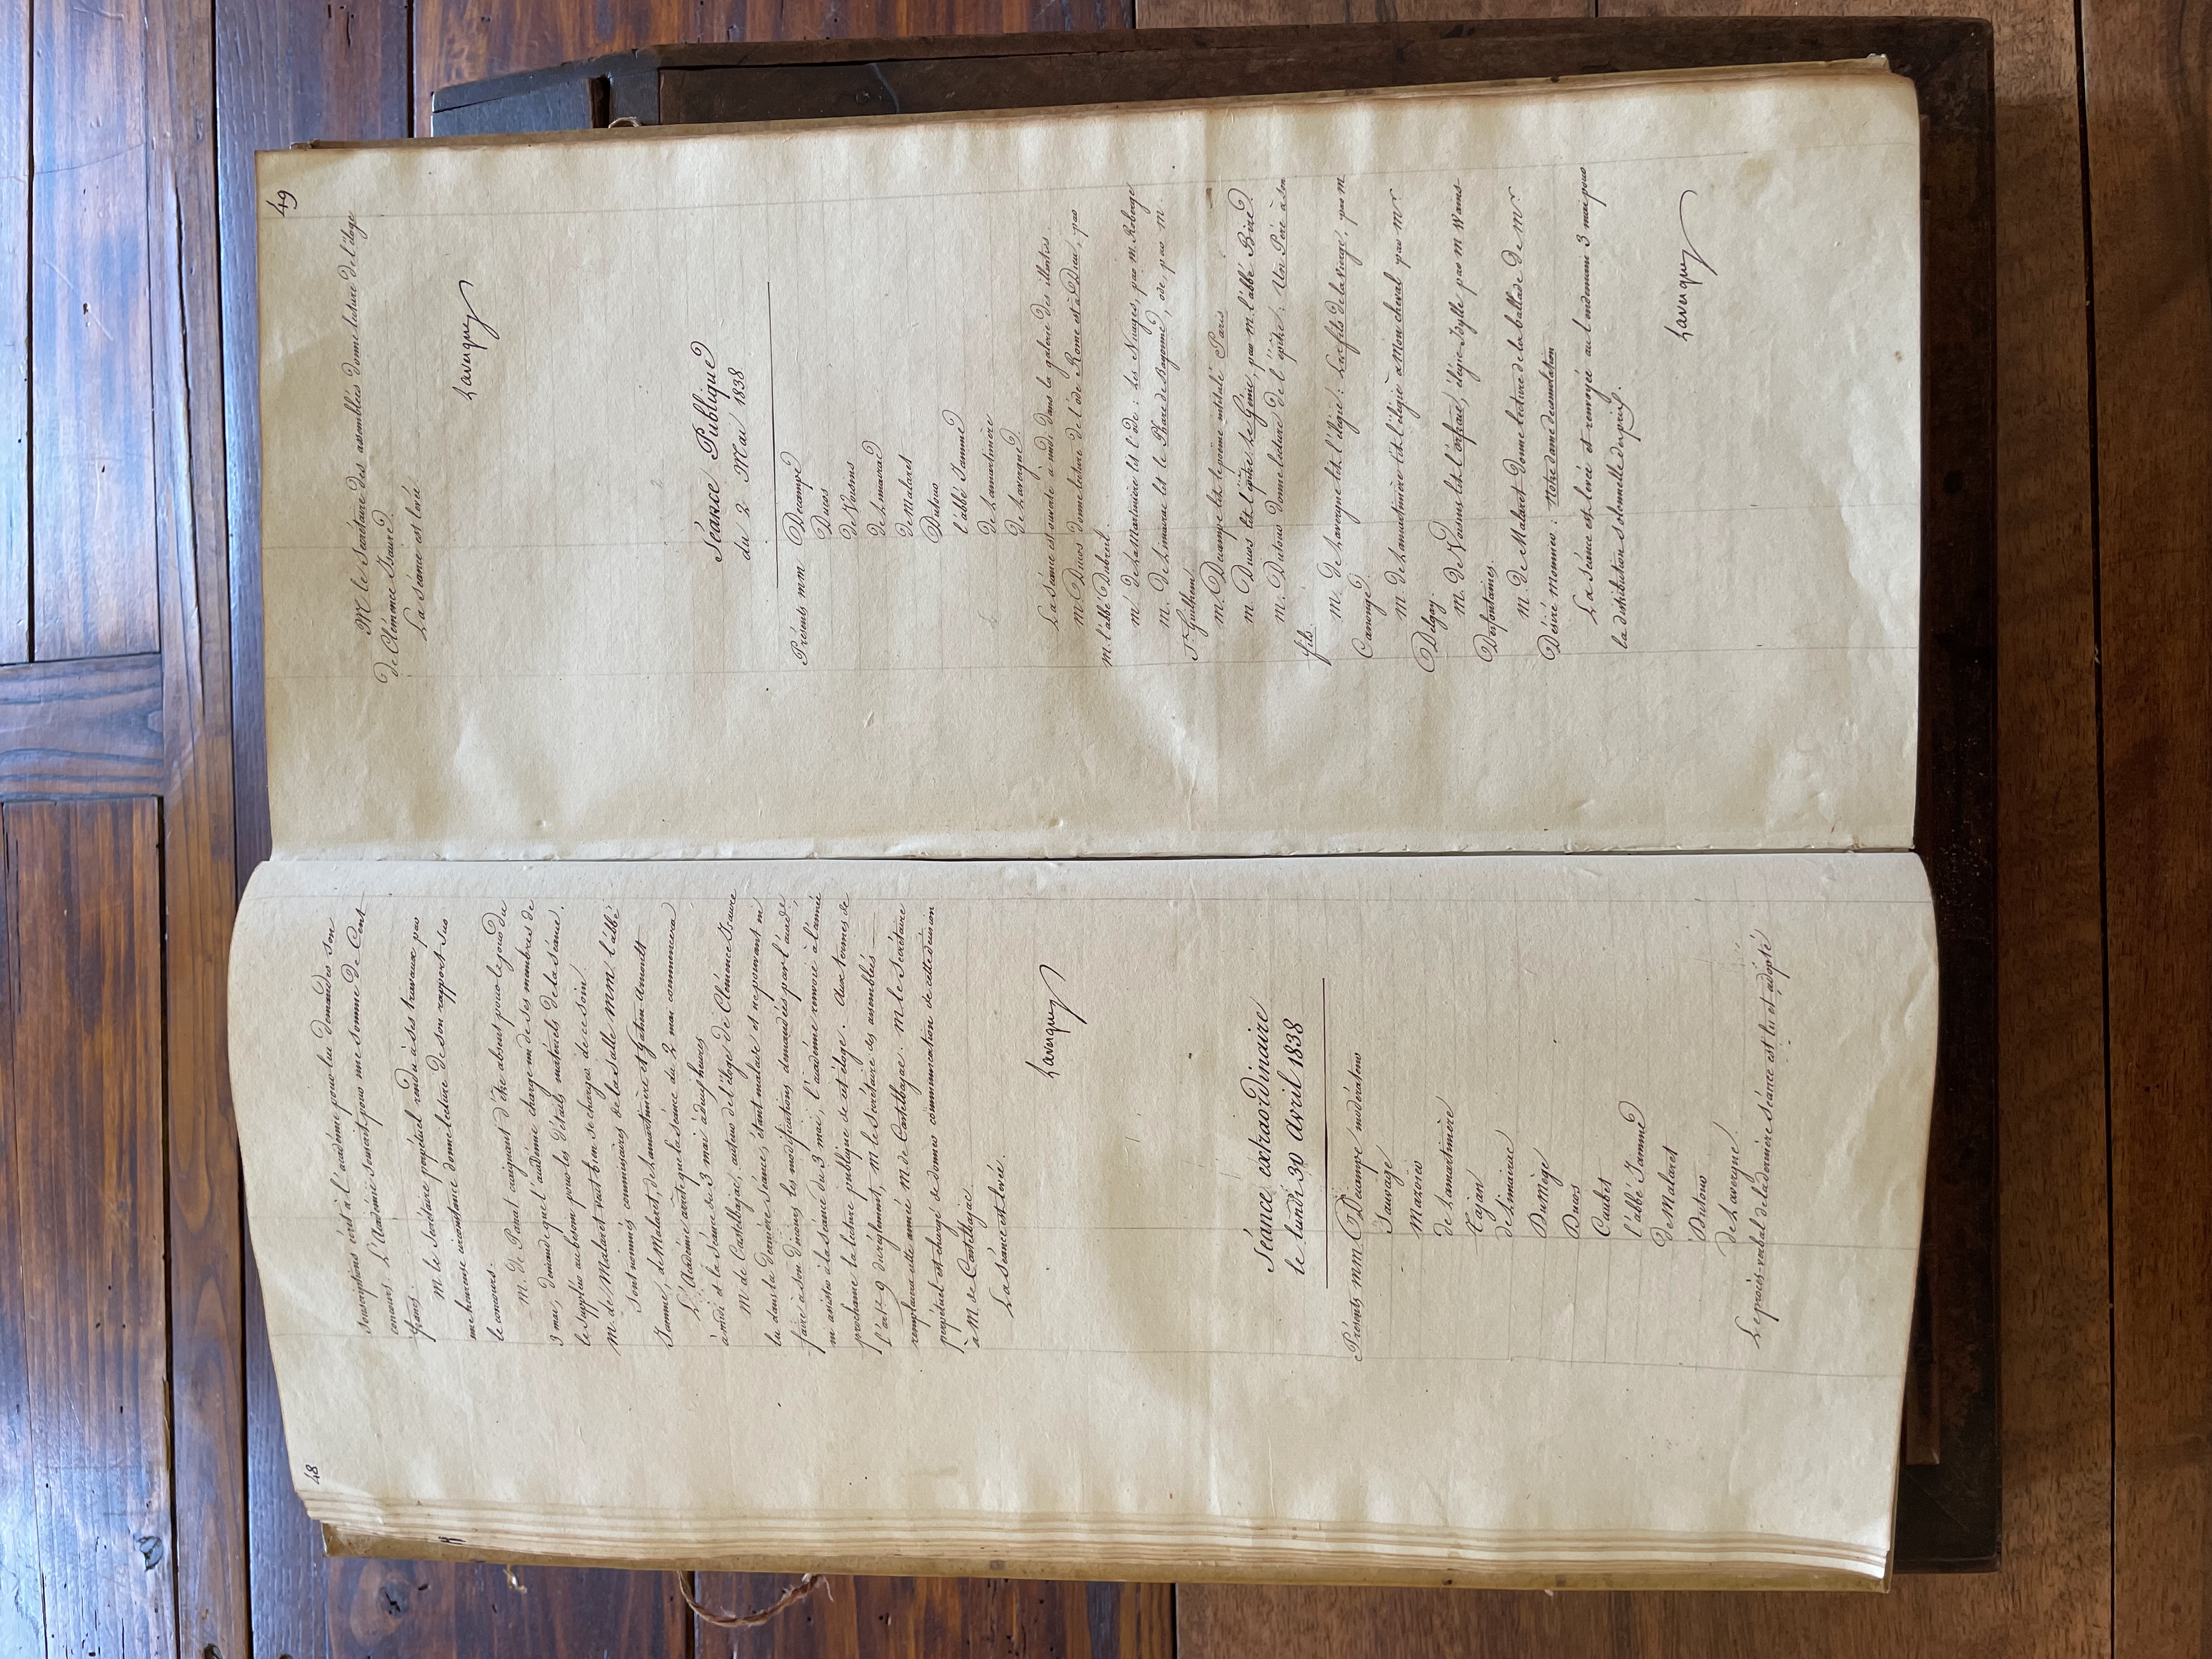 48
souscriptions écrit à l'académie pour lui demander son
concours. L'Académie souscrit pour une somme de Cent
francs.
M le Secrétaire perpétuel rendu à ses travaux par
une heureuse circonstance donne lecture de son rapport sur
le concours.
M. de Panat craignant d'être absent pour le jour du
3 mai, demande que l'académie charge un de ses membres de
le suppléer au besoin pour les détails matériels de la séance.
M. de Malaret veut bien se charger de ce soin.
Sont nommés commissaires de la Salle MM l'abbé
Jamme, de Malaret, de Lamartinière et Gatien-Arnoult
L'Académie arrête que la séance du 2 mai commencera
à midi et la séance du 3 mai à deux heures
M de Castelbajac, auteur de l'éloge de Clémence Isaure
lu dans la dernière séance, étant malade et ne pouvant ni
faire à son discours les modifications demandées par l'acadé,
ni assister à la séance du 3 mai, l'académie renvoie à l'année
prochaine la lecture publique de cet éloge. Aux termes de
l'art. 9 du règlement, M le Secrétaire des assemblées
remplacera cette année M de Castelbajac. M le Secrétaire
perpétuel est chargé de donner communication de cette décision
à M de Castelbajac.
La séance est levée.
Lavergne
Séance extraordinaire
le lundi 30 Avril 1838
Présents MM Decampe modérateur
Sauvage
Mazoier
de Lamartinière
Tajan
de Limairac
DuMège
Ducos
Caubet
l'abbé Jamme
de Malaret
Dutour
de Lavergne.
Le procès-verbal de la dernière séance est lu et adopté
49
M le Secrétaire des assemblées donne lecture de l'éloge
de Clémence Isaure.
La séance est levée
Lavergne
Séance Publique
du 2 Mai 1838
Présents MM Decampe
Ducos
de Voisins
de Limairac
de Malaret
Dutour
l'abbé Jamme
de Lamartinière
de Lavergne
La séance est ouverte à midi dans la galerie des illustres.
M Ducos donne lecture de l'ode Rome est à Dieu, par
M. l'abbé Dubreil.
Mr de LaMartinière lit l'ode : Les Nuages, par M. Roberge
M. de Limairac lit le Phare de Bayonne, ode par M.
St Guilhem.
M. Decampe lit le poème intitulé Paris
M. Ducos lit l'épître Le Génie, par M. l'abbé Biré.
M. Dutour donne lecture de l'épître : Un Père à son
fils.
M. de Lavergne lit l'élégie : Les fils de la Vierge, par M
Canonge.
M. de Lamartinière lit l'élégie à Mon cheval par Mr
Delgay.
M. de Voisins lit l'orfraie, élégie-Idylle par M Wains-
Desfontaines.
M. de Malaret donne lecture de la ballade de Mr
Désiré Monnier : Notre dame de consolation
La séance est levée et renvoyée au lendemain 3 mai pour
la distribution solennelle des prix.
Lavergne